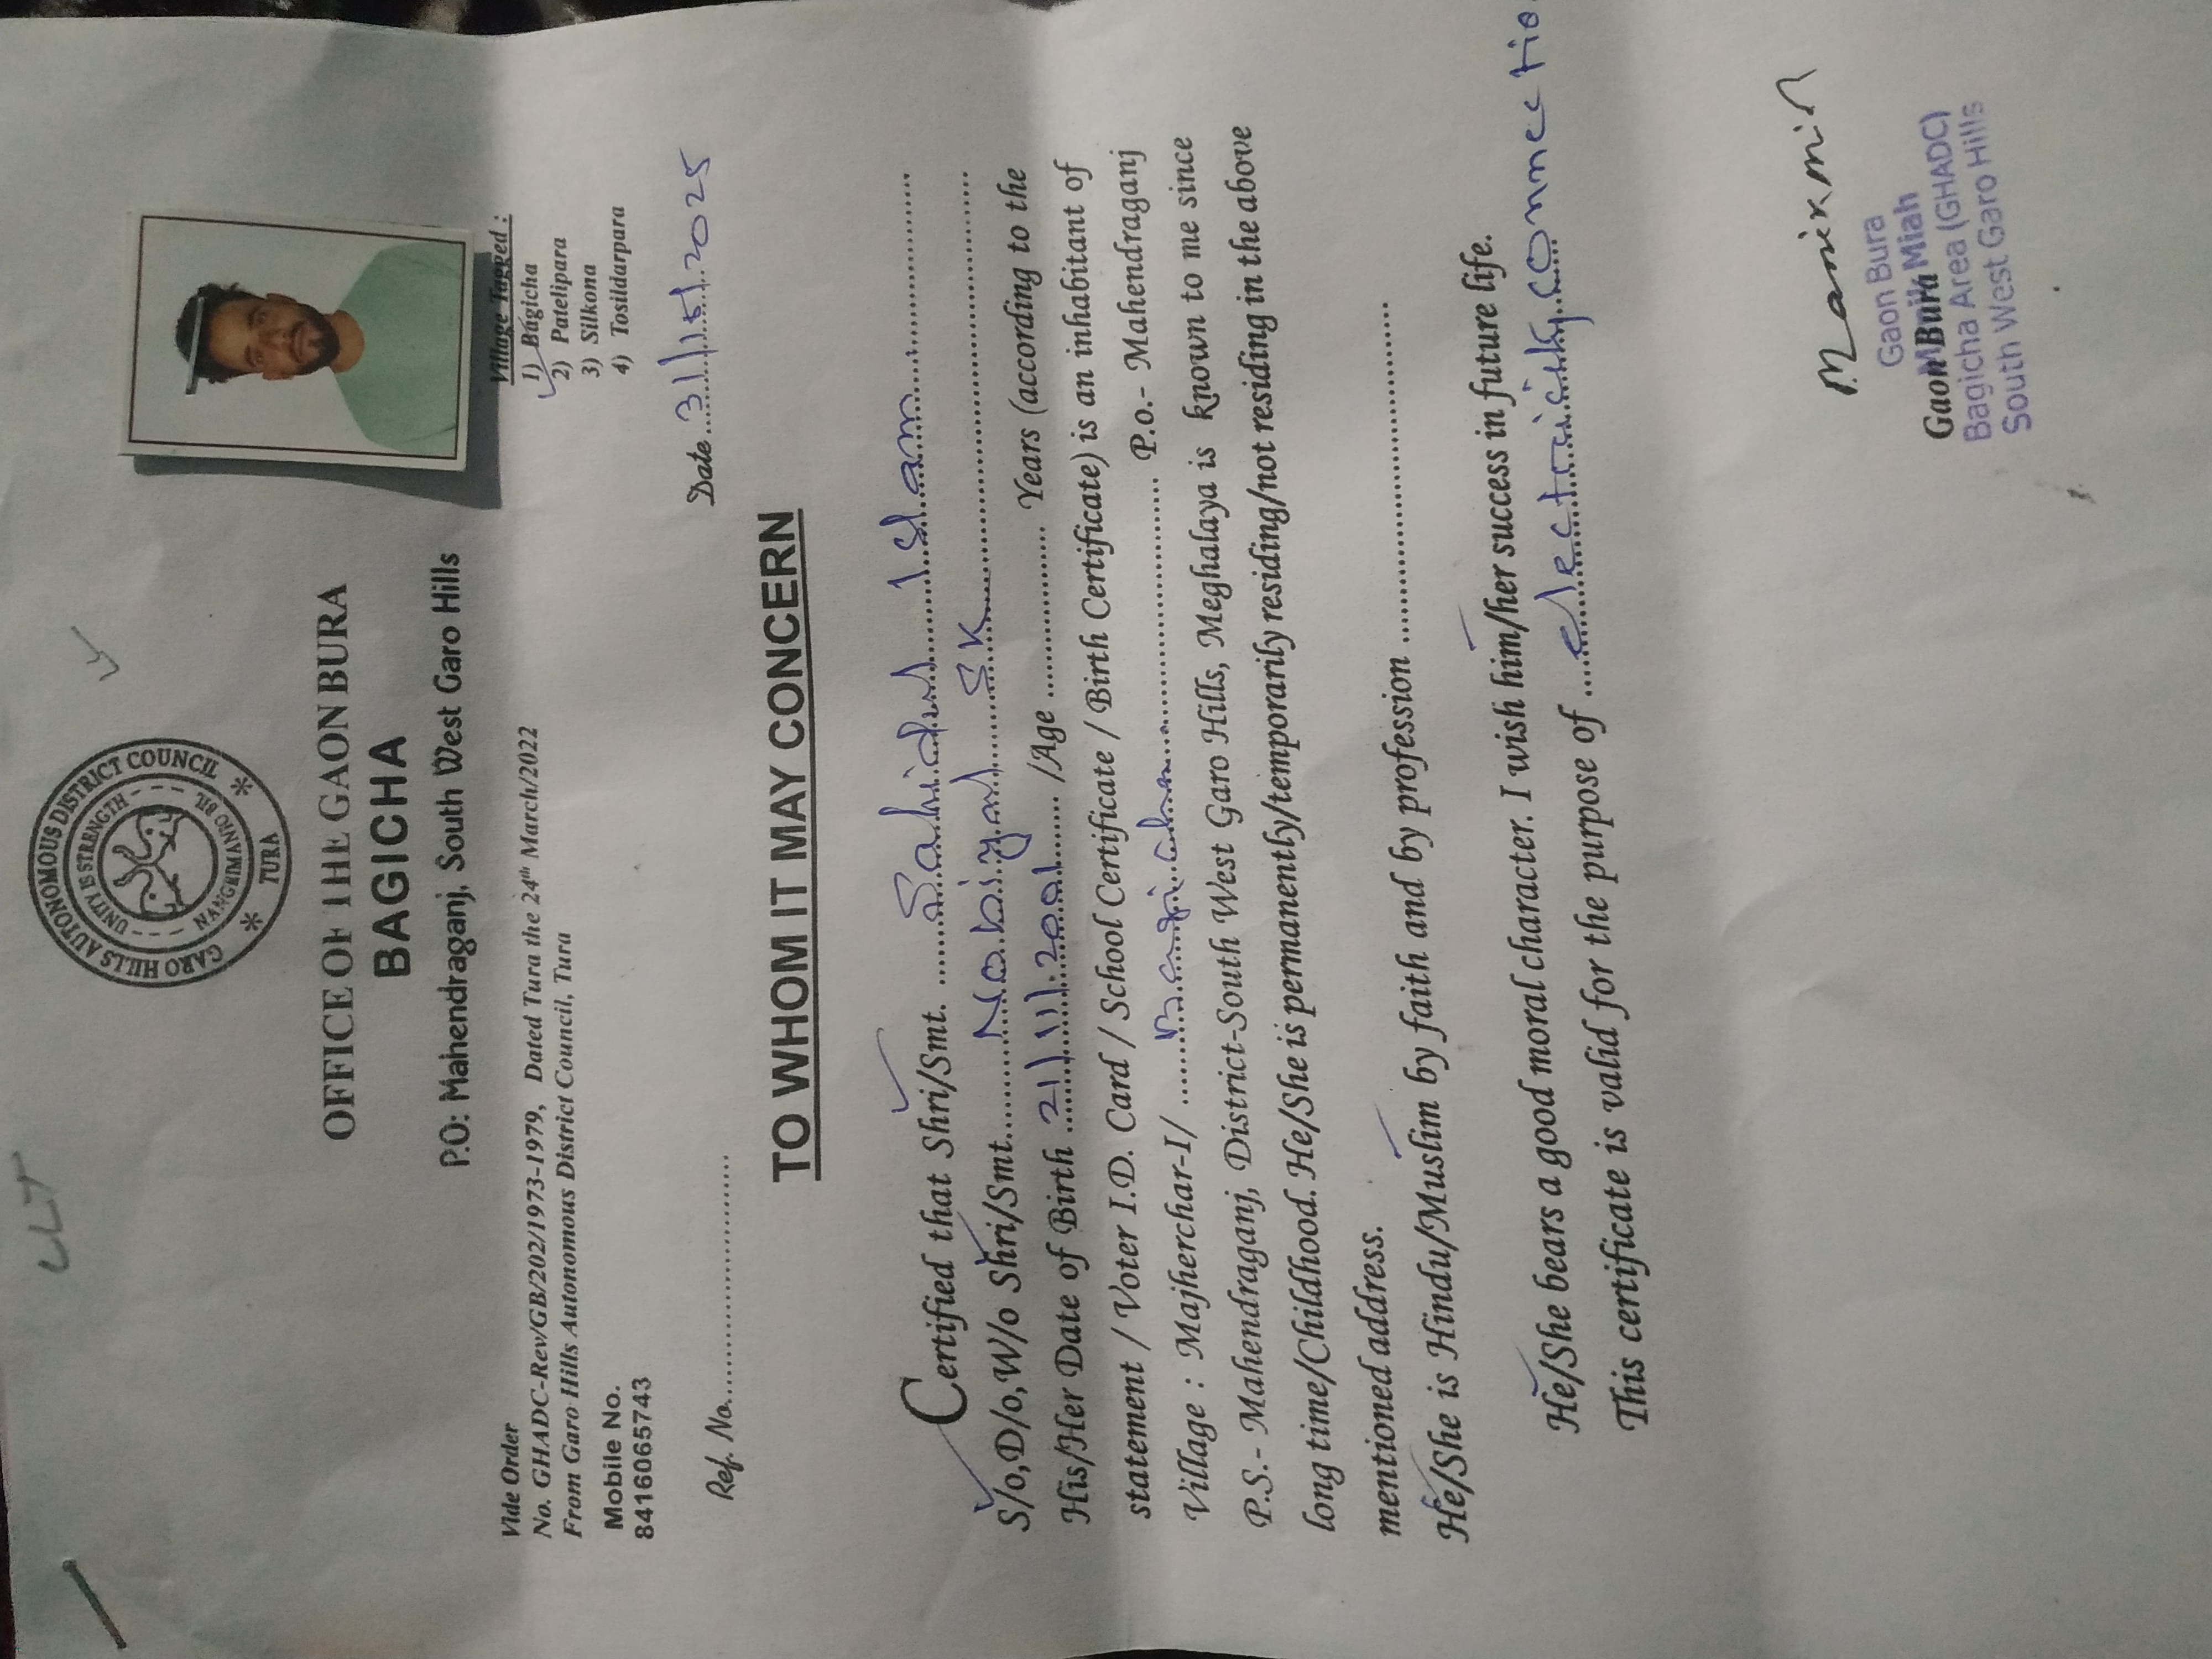 LLT
GARO HILLS AUTONOMOUS DISTRICT COUNCIL
UNITY IS STRENGTH
TURA
OFFICE OF THE GAON BURA
BAGICHA
P.O: Mahendraganj, South West Garo Hills
Vide Order
No. GHADC-Rev/GB/202/1973-1979, Dated Tura the 24th March/2022
From Garo Hills Autonomous District Council, Tura
Mobile No.
8416065743
Village Tagged :
1) Bagicha
2) Patelipara
3) Silkona
4) Tosildarpara
Ref. No..............................
Date 31/5/2025
TO WHOM IT MAY CONCERN
Certified that Shri/Smt. Sahidul Islam
S/o,D/o,W/o Shri/Smt. Nobiyal SK
His/Her Date of Birth 21/11/2001 /Age .................. Years (according to the
statement / Voter I.D. Card / School Certificate / Birth Certificate) is an inhabitant of
Village : Majherchar-I/ Bagicha P.o.- Mahendraganj
P.S.- Mahendraganj, District-South West Garo Hills, Meghalaya is known to me since
long time/Childhood. He/She is permanently/temporarily residing/not residing in the above
mentioned address.
He/She is Hindu/Muslim by faith and by profession ..............................
He/She bears a good moral character. I wish him/her success in future life.
This certificate is valid for the purpose of electricity connectio
Gaon Bura
Manik Miah
Gaon Bura
Bagicha Area (GHADC)
South West Garo Hills